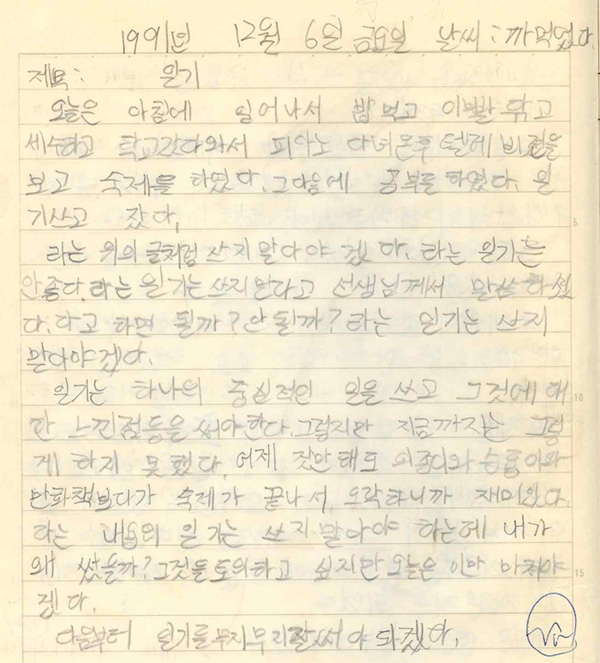 1991년 12월 6일 금요일 날씨: 까먹었다.
제목: 일기
오늘은 아침에 일어나서 밥먹고 이빨 닦고
세수하고 학교갔다와서 피아노 다녀온후 텔레비젼을
보고 숙제를 하였다. 그다음에 공부를 하였다. 일
기쓰고 잤다.
라는 위의 글처럼 쓰지말아야 겠다. 라는 일기는
안좋다. 라는 일기는 쓰지 말라고 선생님께서 말씀 하셨
다. 라고 하면 될까? 안 될까? 라는 일기는 쓰지
말아야겠다.
일기는 하나의 중심적인 일을 쓰고 그것에 대
한 느낀점등을 써야한다. 그렇지만 지금까지는 그렇
게 하지 못했다. 어제 것만해도
만화책보다가 숙제가 끝나서, 오락하니까 재미있다.
라는 내용의 일기는 쓰지 말아야 하는데 내가
왜 썼을까? 그것을 토의하고 싶지만 오늘은 이만 마쳐야
겠다.
다음부터 일기를 무지무지 잘 써야 되겠다.
5
10
15